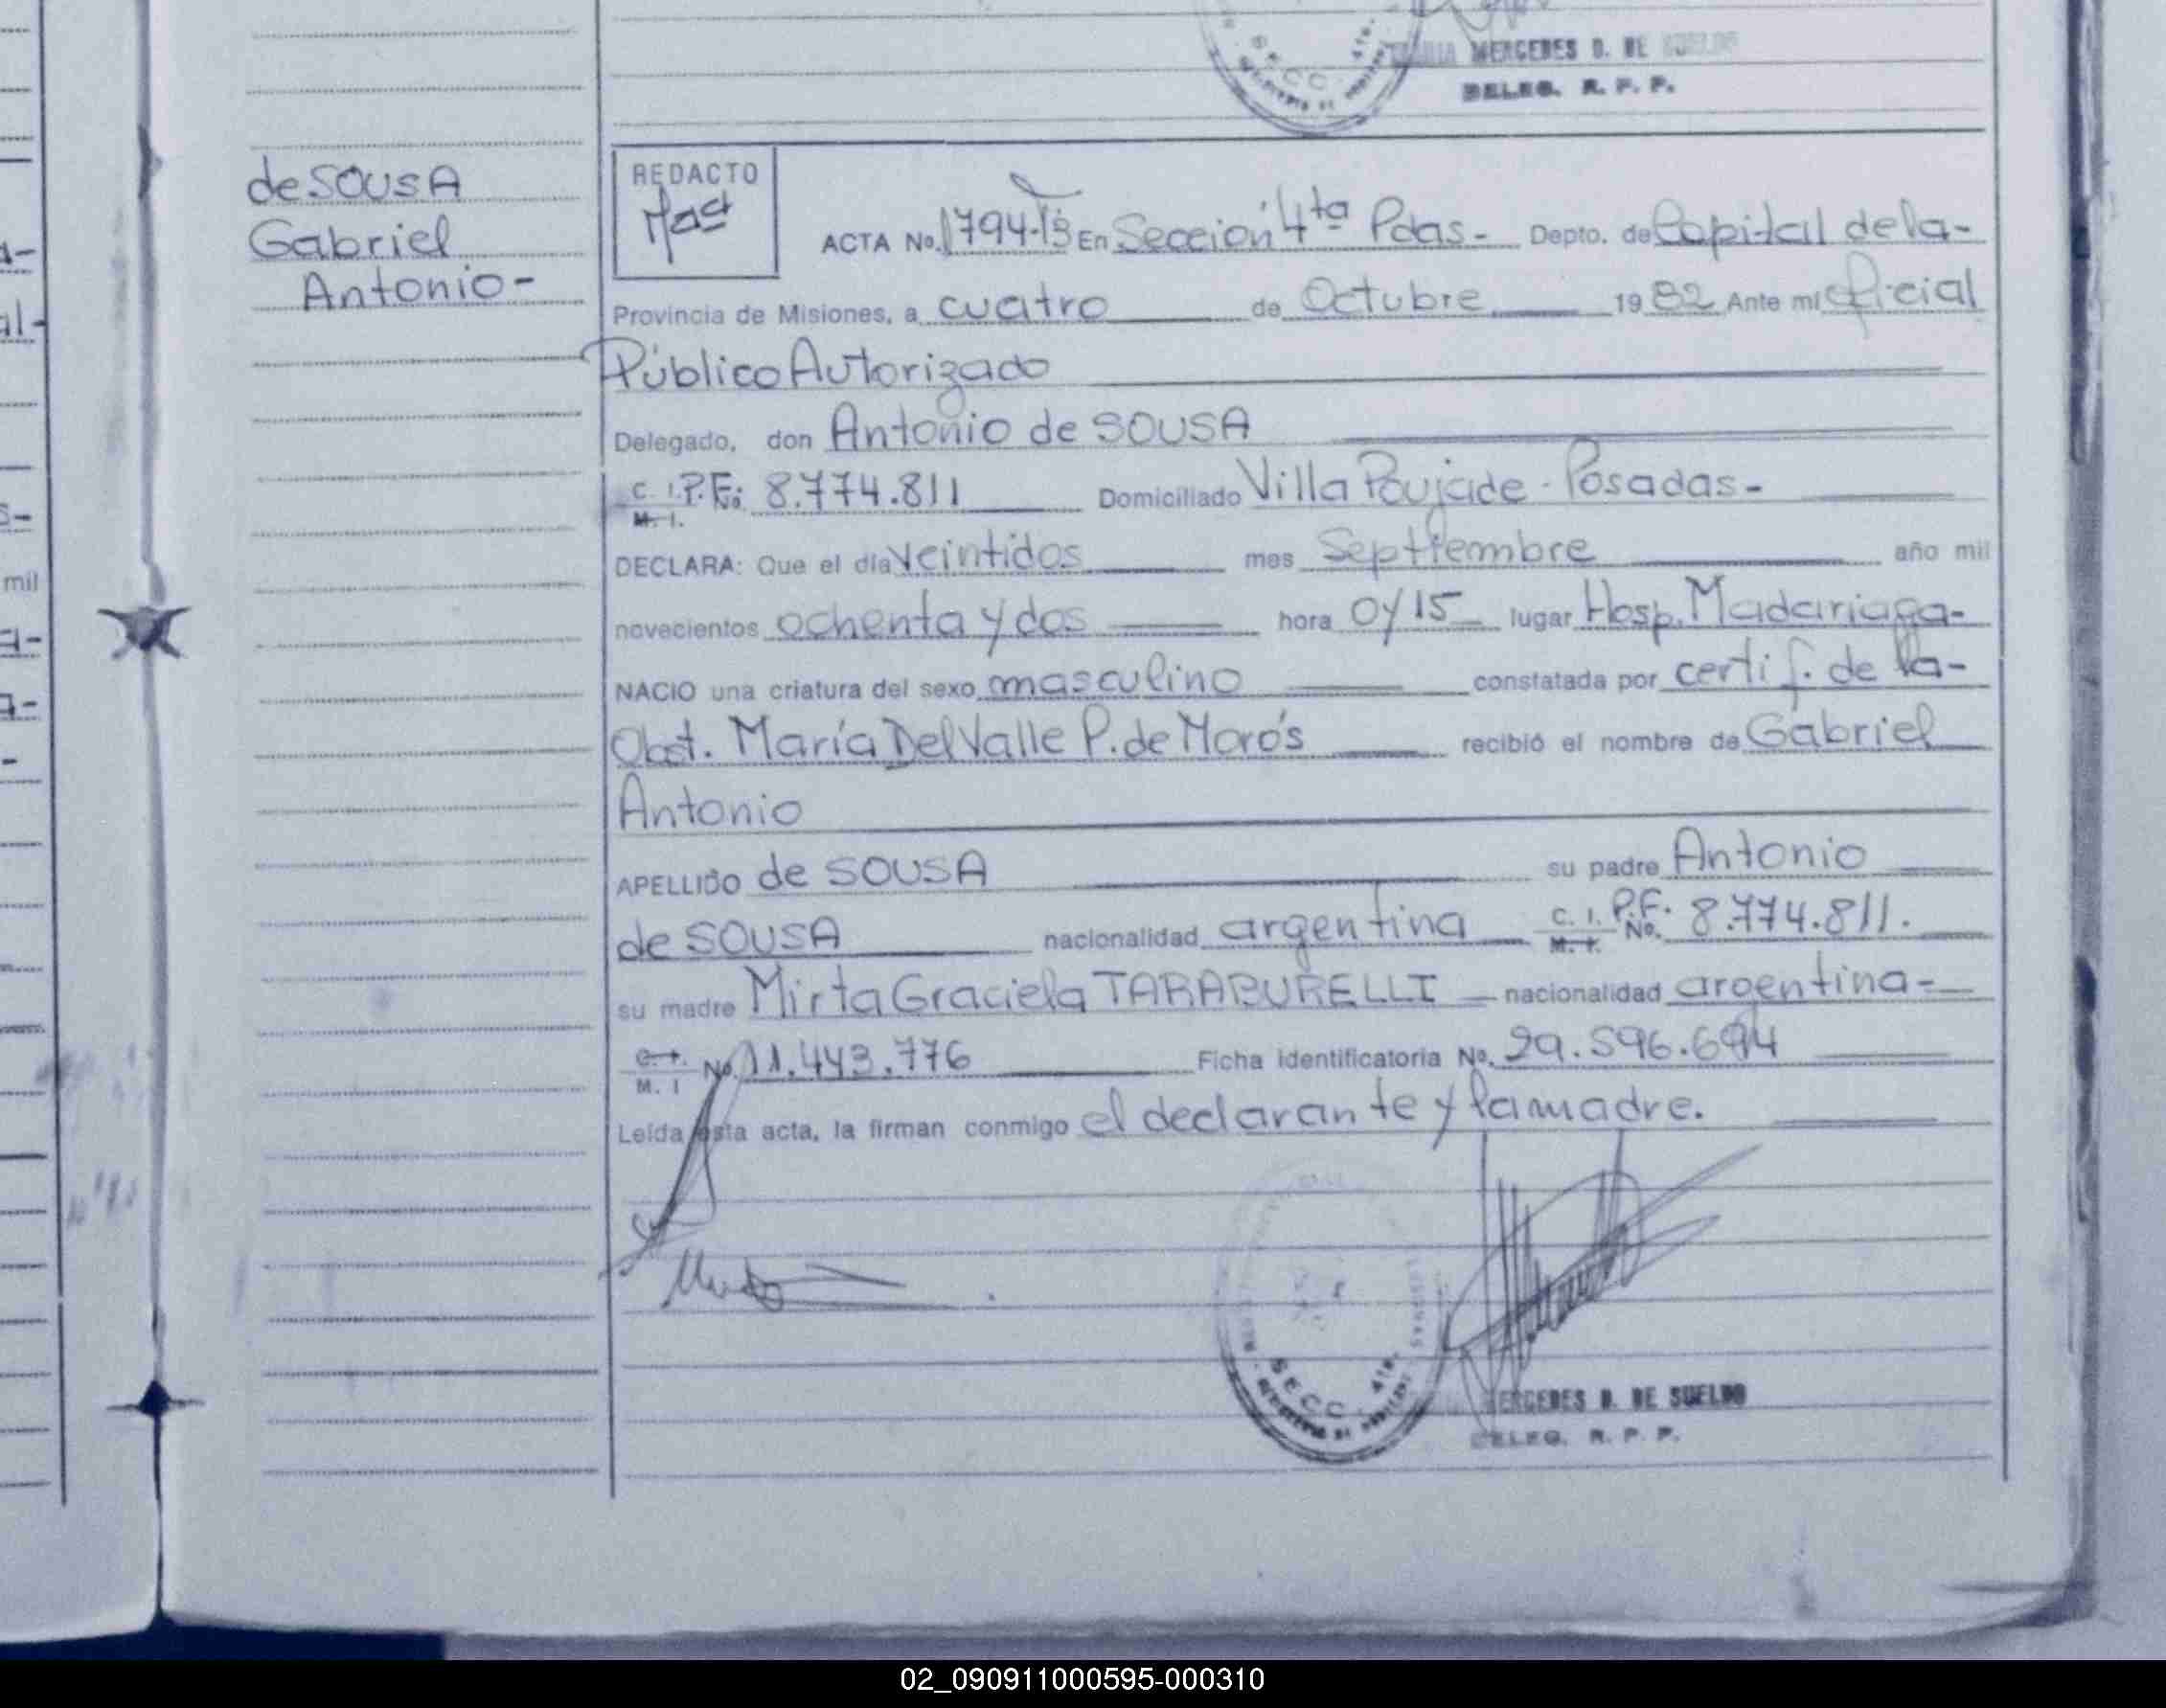 MERCEDES D. DE SUELDO
DELEG. R. P. P.
de SOUSA
Gabriel
Antonio-
REDACTO
ACTA No. 1794-T3 En Sección 4ta Pdas- Depto. de Capital de la-
Provincia de Misiones, a cuatro de Octubre 1982 Ante mí Oficial
Público Autorizado
Delegado, don Antonio de SOUSA
C. I. P.F. No. 8.774.811 Domiciliado Villa Poujade - Posadas-
M. I.
DECLARA: Que el día veintidos mes Septiembre año mil
novecientos ochenta y dos hora 0y15 lugar Hosp. Madariaga-
NACIO una criatura del sexo masculino constatada por certif. de la-
Obst. María Del Valle P. de Morós recibió el nombre de Gabriel
Antonio
APELLIDO de SOUSA su padre Antonio
de SOUSA nacionalidad argentina C. I. P.F. No. 8.774.811.
M. I.
su madre Mirta Graciela TARABURELLI nacionalidad argentina-
C. I. No. 11.443.776 Ficha identificatoria No. 29.596.694
M. I
Leída esta acta, la firman conmigo el declarante y la madre.
SECC. 4ta.
MERCEDES D. DE SUELDO
DELEG. R. P. P.
mil
02_090911000595-000310